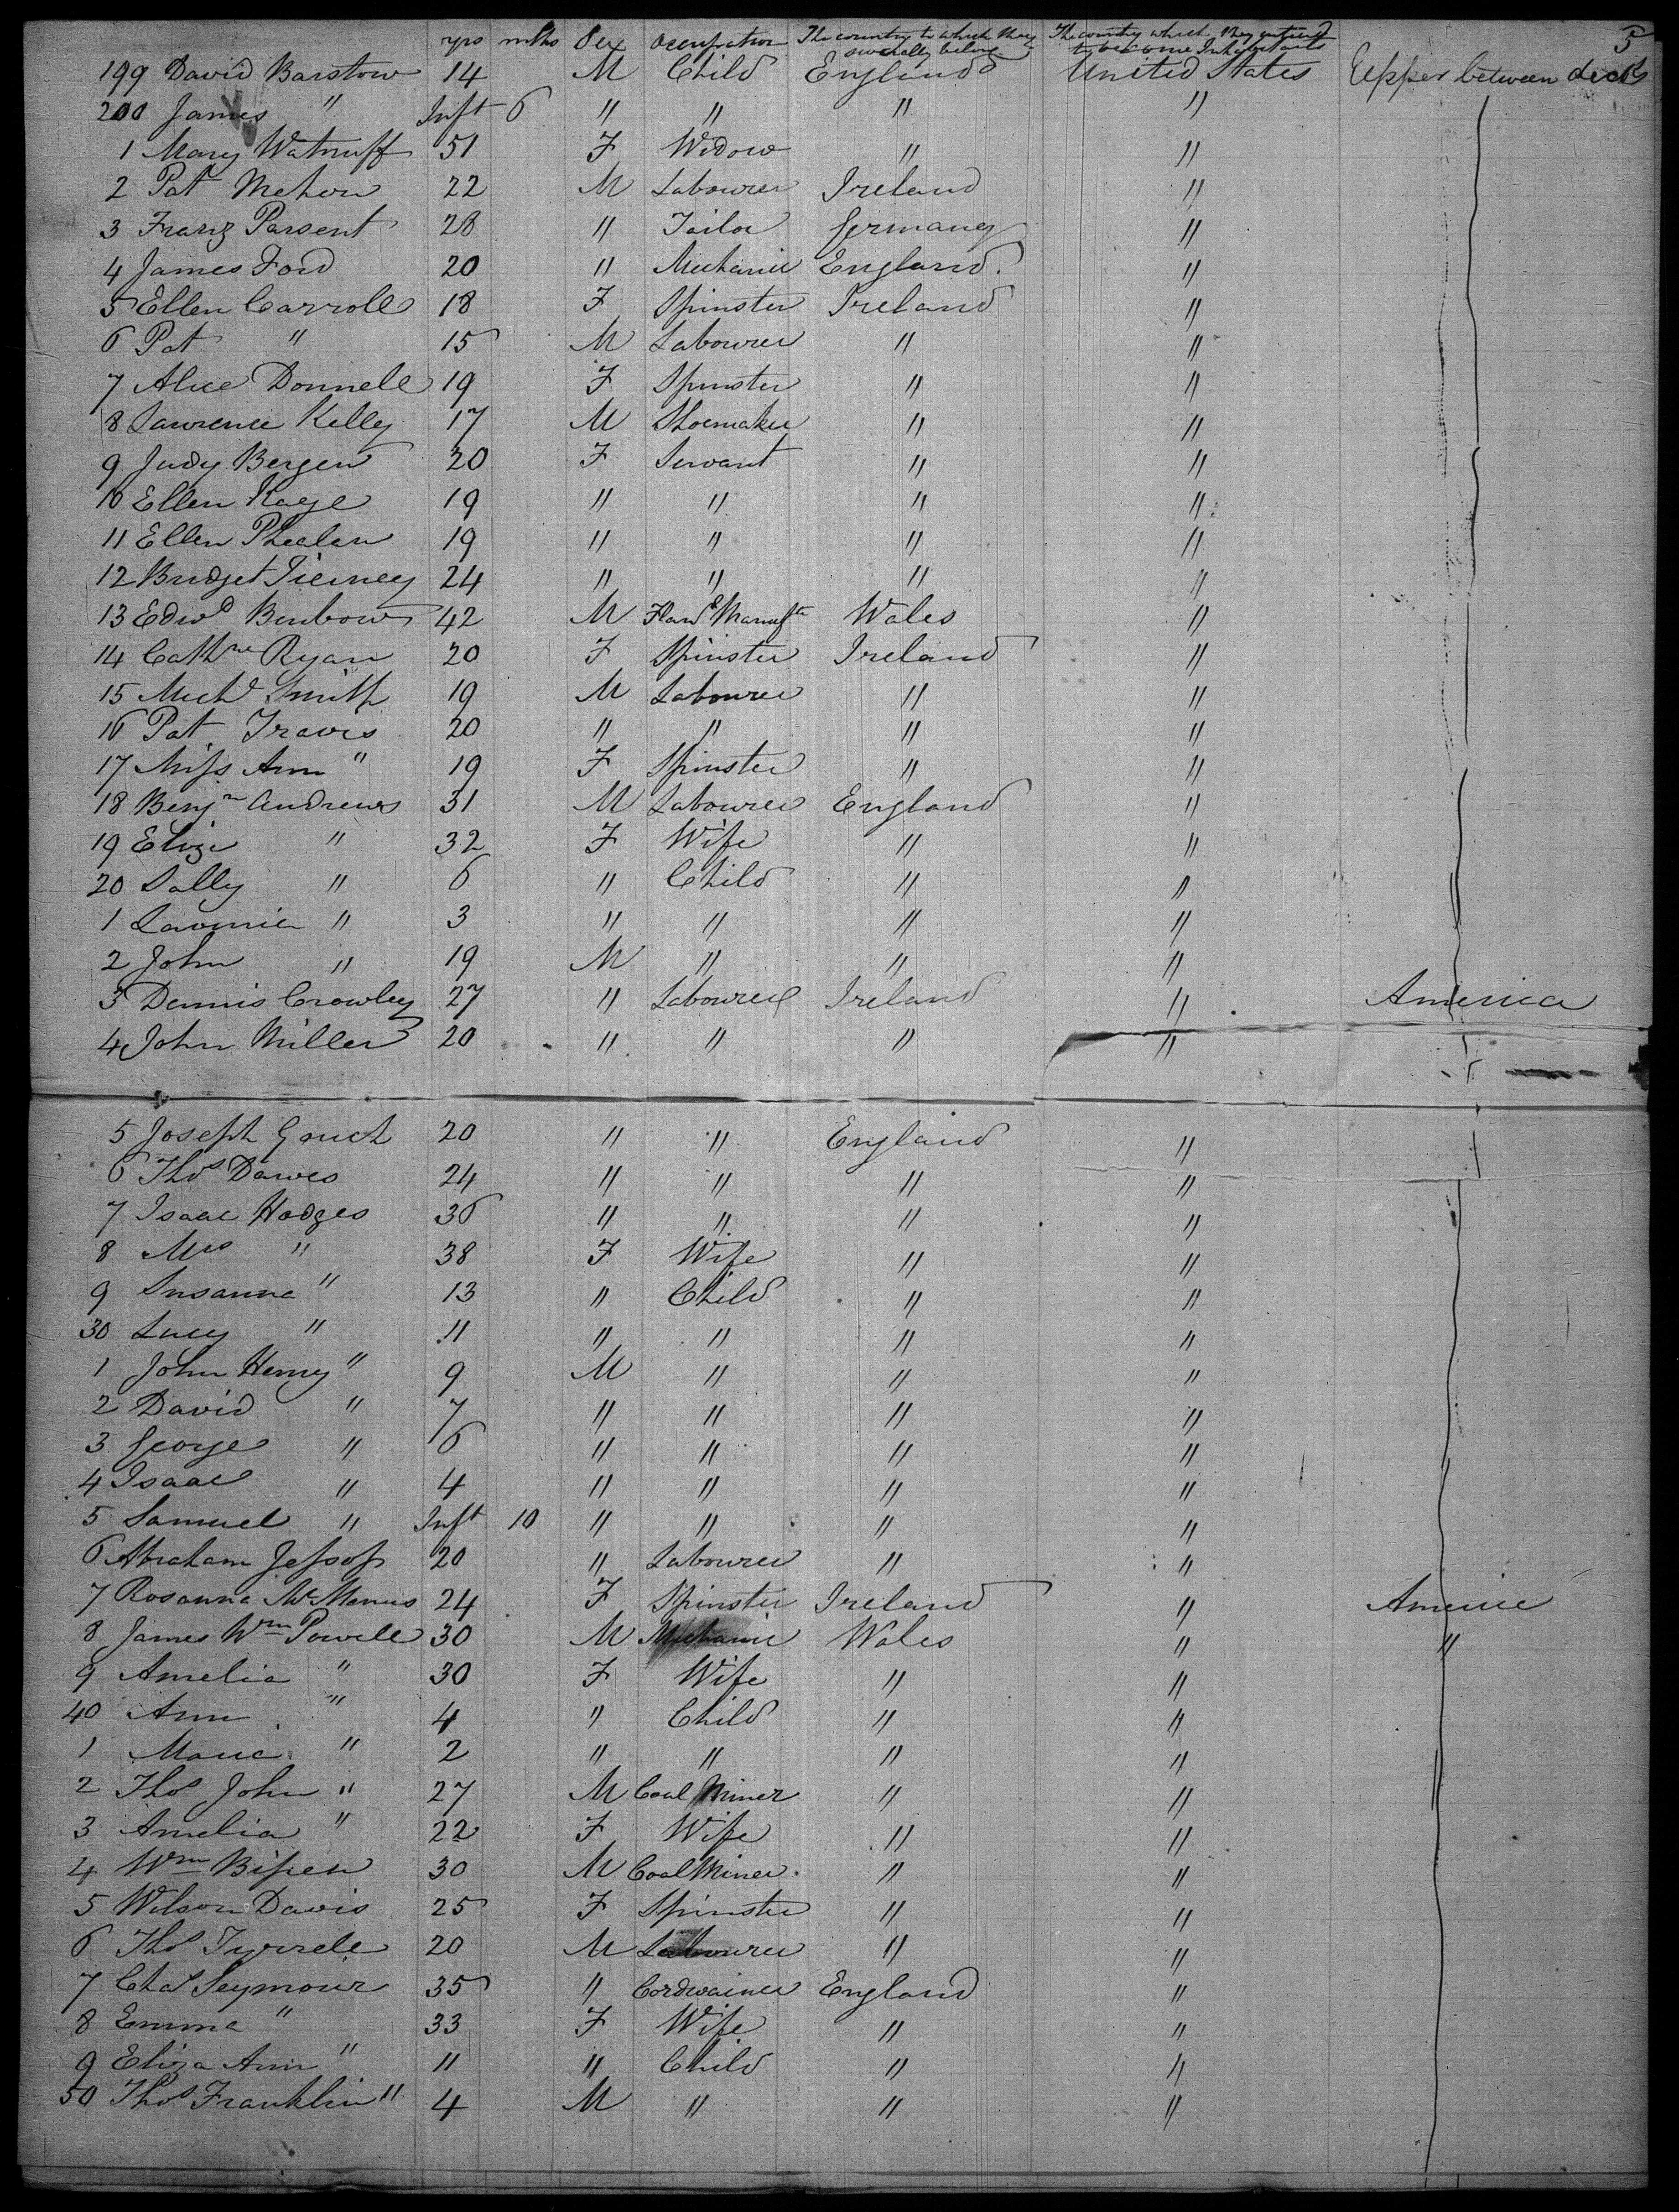 yrs mths Sex Occupation The country to which they severally belong The country which they intend to become Inhabitants 5
199 David Barstow 14 M Child England United States Upper between decks
200 James " Inft 6 " " " "
1 Mary Watruff 51 F Widow " "
2 Pat Mehon 22 M Labourer Ireland "
3 Franz Parsent 28 " Tailor Germany "
4 James Ford 20 " Mechanic England. "
5 Ellen Carroll 18 F Spinster Ireland "
6 Pat " 15 M Labourer " "
7 Alice Donnell 19 F Spinster " "
8 Lawrence Kelly 17 M Shoemaker " "
9 Judy Bergen 20 F Servant " "
10 Ellen Kage 19 " " " "
11 Ellen Phealen 19 " " " "
12 Bridget Tierney 24 " " " "
13 Edwd Benbow 42 M Manuftr Wales "
14 Cathne Ryan 20 F Spinster Ireland "
15 Michl Smith 19 M Labourer " "
16 Pat Travis 20 " " " "
17 Miss Ann " 19 F Spinster " "
18 Benjn Andrews 31 M Labourer England "
19 Eliza " 32 F Wife " "
20 Sally " 6 " Child " " "
1 Lavinia " 3 " " " "
2 John " 19 M " " "
3 Dennis Crowley 27 " Labourer Ireland " America
4 John Miller 20 " " " "
5 Joseph Gouch 20 " " England "
6 Thos Dawes 24 " " " "
7 Isaac Hodges 36 " " " "
8 Mrs " 38 F Wife " "
9 Susanna " 13 " Child " "
30 Lucy " 11 " " " "
1 John Henry " 9 M " " "
2 David " 7 " " " "
3 George " 6 " " " "
4 Isaac " 4 " " " "
5 Samuel " Inft 10 " " " "
6 Abraham Jessop 20 " Labourer " "
7 Rosanna McManus 24 F Spinster Ireland " America
8 James Wm Powell 30 M Mechanic Wales " "
9 Amelia " 30 F Wife " "
40 Ann " 4 " Child " "
1 Maria " 2 " " " "
2 Thos John " 27 M Coal Miner " " "
3 Amelia " 22 F Wife " "
4 Wm Bipen 30 M Coal Miner " "
5 Wilson Davis 25 F Spinster " "
6 Thos Tyrrele 20 M Labourer " "
7 Chas Seymour 35 " Cordwainer England "
8 Emma " 33 F Wife " "
9 Eliza Ann " 11 " Child " "
50 Thos Franklin " 4 M " " "